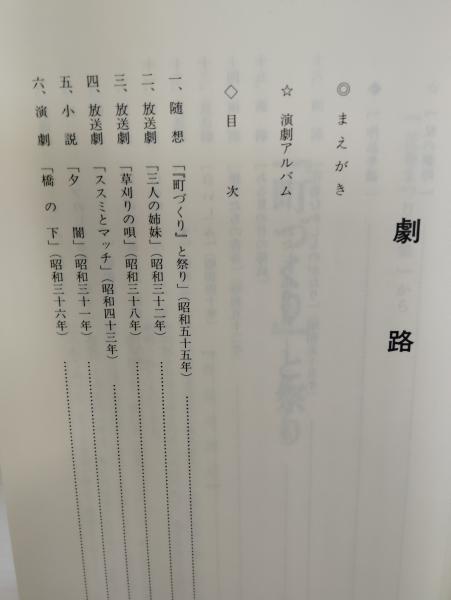 劇路
◎まえがき
☆演劇アルバム
◇目次
一、随想「『町づくり』と祭り」（昭和五十五年）
二、放送劇「三人の姉妹」（昭和三十二年）
三、放送劇「草刈りの唄」（昭和三十八年）
四、放送劇「ススミとマッチ」（昭和四十三年）
五、小説「夕闇」（昭和三十一年）
六、演劇「橋の下」（昭和三十六年）